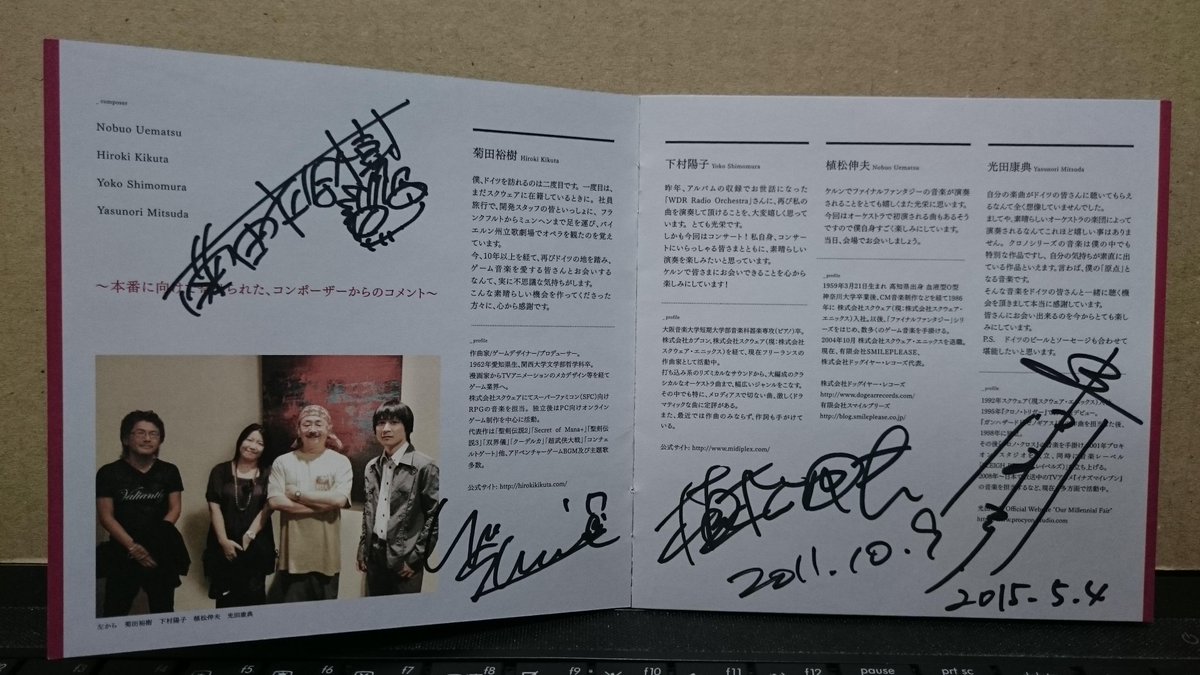 _composer
Nobuo Uematsu
Hiroki Kikuta
Yoko Shimomura
Yasunori Mitsuda
～本番に向けて
られた、コンポーザーからのコメント～
左から 菊田裕樹 下村陽子 植松伸夫 光田康典
菊田裕樹 Hiroki Kikuta
僕、ドイツを訪れるのは二度目です。一度目は、
まだスクウェアに在籍しているときに。社員
旅行で、開発スタッフの皆といっしょに、フラ
ンクフルトからミュンヘンまで足を運び、バイ
エルン州立歌劇場でオペラを観たのを覚え
ています。
今、10年以上を経て、再びドイツの地を踏み、
ゲーム音楽を愛する皆さんとお会いする
なんて、実に不思議な気持ちがします。
こんな素晴らしい機会を作ってくださった
方々に、心から感謝です。
_profile
作曲家/ゲームデザイナー/プロデューサー。
1962年愛知県生、関西大学文学部哲学科卒。
漫画家からTVアニメーションのメカデザイン等を経て
ゲーム業界へ。
株式会社スクウェアにてスーパーファミコン(SFC)向け
RPGの音楽を担当。独立後はPC向けオンライン
ゲーム制作を中心に活動。
代表作は「聖剣伝説2」「Secret of Mana+」「聖剣伝
説3」「双界儀」「クーデルカ」「超武侠大戦」「コンチェ
ルトゲート」他、アドベンチャーゲームBGM及び主題歌
多数。
公式サイト: http://hirokikikuta.com/
下村陽子 Yoko Shimomura
昨年、アルバムの収録でお世話になった
「WDR Radio Orchestra」さんに、再び私の
曲を演奏して頂けることを、大変嬉しく思って
います。とても光栄です。
しかも今回はコンサート！私自身、コンサー
トにいらっしゃる皆さまとともに、素晴らしい
演奏を楽しみたいと思っています。
ケルンで皆さまにお会いできることを心から
楽しみにしています！
_profile
大阪音楽大学短期大学部音楽科器楽専攻(ピアノ)卒。
株式会社カプコン、株式会社スクウェア(現:株式会社
スクウェア・エニックス)を経て、現在フリーランスの
作曲家として活動中。
打ち込み系のリズミカルなサウンドから、大編成のクラ
シカルなオーケストラ曲まで、幅広いジャンルをこなす。
その中でも特に、メロディアスで切ない曲、激しくドラ
マティックな曲に定評がある。
また、最近では作曲のみならず、作詞も手がけて
いる。
公式サイト: http://www.midiplex.com/
植松伸夫 Nobuo Uematsu
ケルンでファイナルファンタジーの音楽が演奏
されることをとても嬉しくまた光栄に思います。
今回はオーケストラで初演される曲もあるそう
ですので僕自身すごく楽しみにしています。
当日、会場でお会いしましょう。
_profile
1959年3月21日生まれ 高知県出身 血液型O型
神奈川大学卒業後、CM音楽制作などを経て1986
年に 株式会社スクウェア(現:株式会社スクウェア・
エニックス)入社。以後、「ファイナルファンタジー」シリ
ーズをはじめ、数多くのゲーム音楽を手掛ける。
2004年10月 株式会社スクウェア・エニックスを退職。
現在、有限会社SMILEPLEASE、
株式会社ドッグイヤー・レコーズ代表。
株式会社ドッグイヤー・レコーズ
http://www.dogearrecords.com/
有限会社スマイルプリーズ
http://blog.smileplease.co.jp/
植松伸夫
2011.10.9
光田康典 Yasunori Mitsuda
自分の楽曲がドイツの皆さんに聴いてもらえ
るなんて全く想像していませんでした。
ましてや、素晴らしいオーケストラの楽団によって
演奏されるなんてこれほど嬉しい事はありま
せん。クロノシリーズの音楽は僕の中でも
特別な作品ですし、自分の気持ちが素直に出
ている作品といえます。言わば、僕の「原点」と
なる音楽です。
そんな音楽をドイツの皆さんと一緒に聴く機
会を頂きまして本当に感謝しています。
皆さんにお会い出来るのを今からとても楽し
みにしています！
P.S. ドイツのビールとソーセージも合わせて
堪能したいと思います。
_profile
1992年スクウェア(現スクウェア
1995年「クロノ・トリガー」
デビュー。
1998年に
オンスタジオ
同時に音楽レーベル
を立ち上げる。
2008年～日本
送中のTVア
「イナズマイレブン」
の音楽を担当するなど、現在
多方面で活動中。
Official Website "Our Millennial Fair"
2015.5.4
f5
f6
f7
f8
f9
f10
f11
f12
pause
prt sc